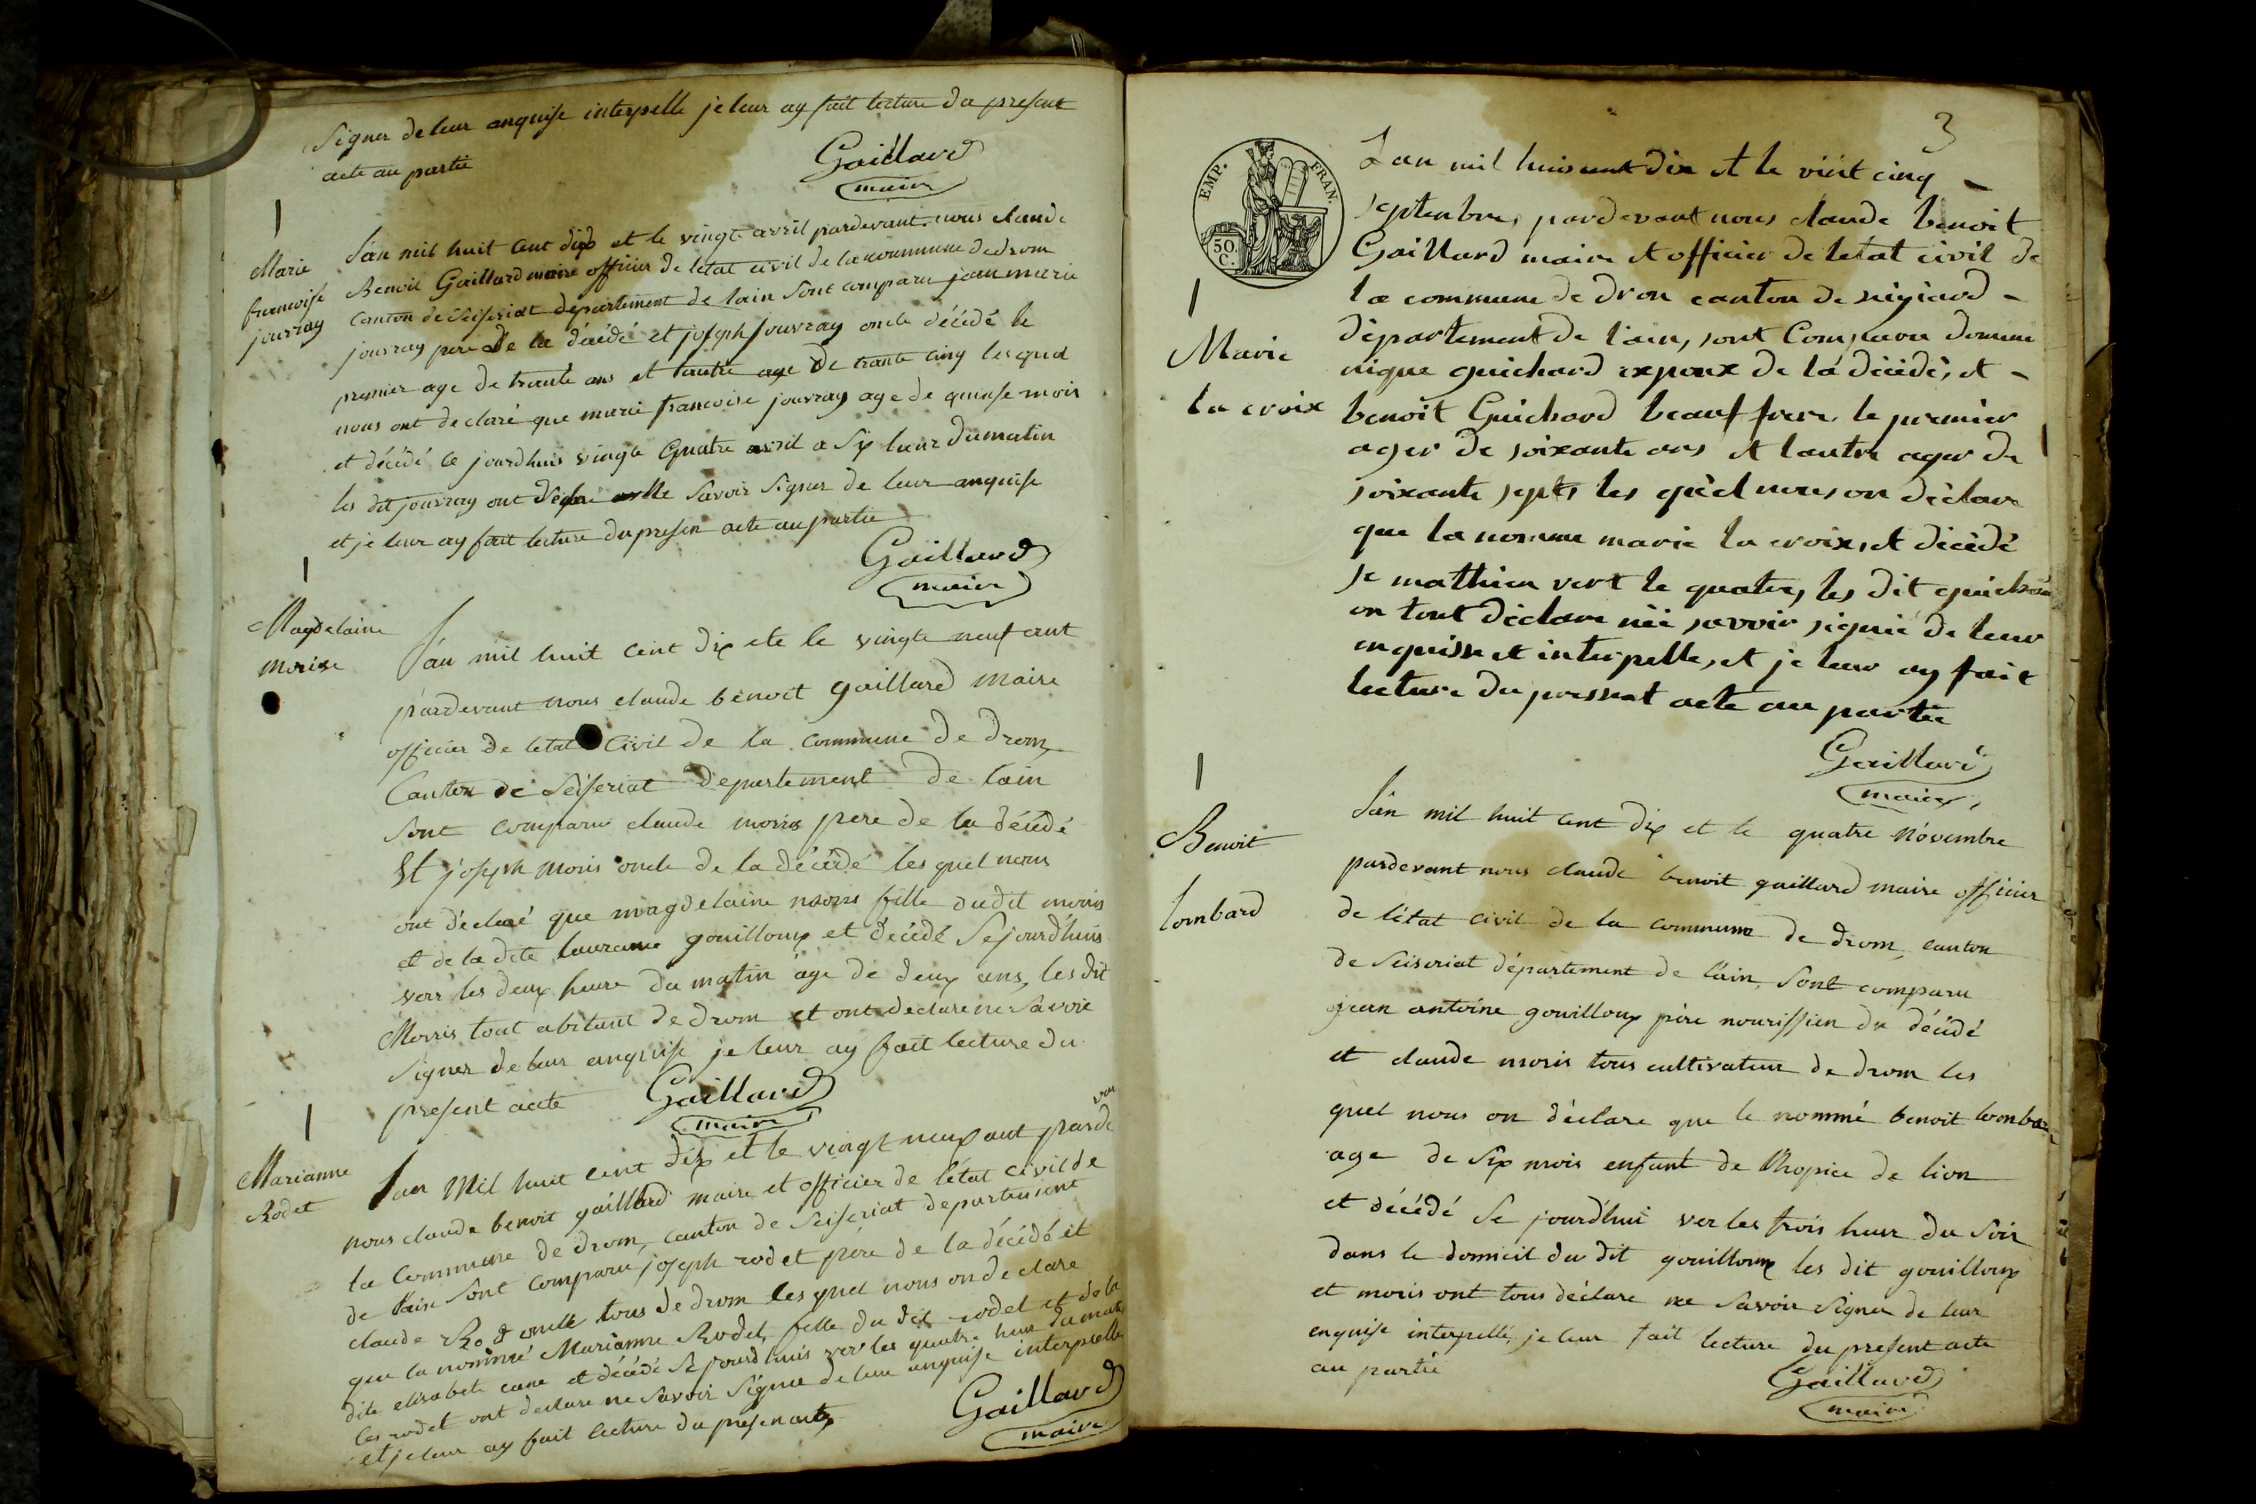 Signer de leur anquise interpelle je leur ay fait lecture du present
acte au partie
Gaillard
maire
Marie
francoise
jouvray
L'an mil huit cent dix et le vingt avril pardevant nous claude
Benoit Gaillard maire officier de letat civil de la commune de drom
canton de Ceiseriat departement de lain sont comparu jean marie
jouvray pere de la décédé et joseph jouvray oncle décédé le
premier age de trante ans et lautre age de trante cinq les quel
nous ont declaré que marie francoise jouvray age de quinse mois
et décédé ce jourdhuis vingte quatre avril a six heur du matin
les dit jouvray ont savoir signer de leur anquise
et je leur ay fait lecture du presen acte au partie
Gaillard
maire
Magdelaine
morise
L'an mil huit cent dix ete le vingte neuf aut
pardevant nous claude benoit gaillard maire
officier de letat civil de la commune de drom
Canton de Seiseriat departement de lain
sont comparus claude moris pere de la décédé
Et joseph moris oncle de la décédé les quel nous
ont déclaré que magdelaine moris fille dudit moris
et de la dite gouilloux et décédé se jourdhuis
vers les deux heure du matin age de deux ans, les dit
Morris tout abitant de drom et ont declare ne savoir
signer de leur anquise je leur ay fait lecture du
present acte
Gaillard
maire
Marianne
Rodet
Lan Mil huit cent dix et le vingt neuf aut parde
van
nous claude benoit gaillard maire et officier de létat civil de
la Commune de drom, canton de Seiseriat departement
de lain sont comparu joseph rodet pére de la décédé et
claude Rod oncle tous de drom les quel nous on declare
que la nommé Marianne Rodet, fille du dit rodet et de la
dite elisabete cane et décédé se jourdhuis ver les quatre heur du mat
les rodet ont declare ne savoir signer de leur anquise interpelle
et je leur ay fait lecture du present acte
Gaillard
maire
3
EMP. FRAN.
50.
C.
Marie
la croix
Lan mil huis cent dix et le vint cinq
septenbre, pardevant nous claude benoit
Gaillard maire et officier de letat civil de
la commune de dron canton de
département de l'ain, sont Comparu domine
nique guichard expoux de la décédé, et
benoit Guichard beauf frere le premier
ager de soixante ans et lautre ager de
soixante septs les quèl nous on dèclare
que la nomme marie la croix, et dècèdé
se mathien vert le quatre, les dit guichard
on tout dèclare nèe savoir signié de leur
enquisse et interpelle, et je leur ay fait
lecture du pressent acte au partie
Gaillard
maire
Benoit
lombard
L'an mil huit cent dix et le quatre Novembre
pardevant nous claude benoit gaillard maire officier
de létat civil de la commune de drom, canton
de Seiseriat département de l'ain, sont comparu
jean antoine gouilloux père nourissien du décédé
et claude moris tous cultivateur de drom les
quel nous on déclare que le nommé benoit lombar
age de six mois enfant de lhopice de lion
et décédé se jourdhui ver les trois heur du soir
dans le domicil du dit gouilloux les dit gouilloux
et moris ont tous déclare ne savoir signer de leur
enquise interpellé, je leur fait lecture du present acte
au partie
Gaillard
maire